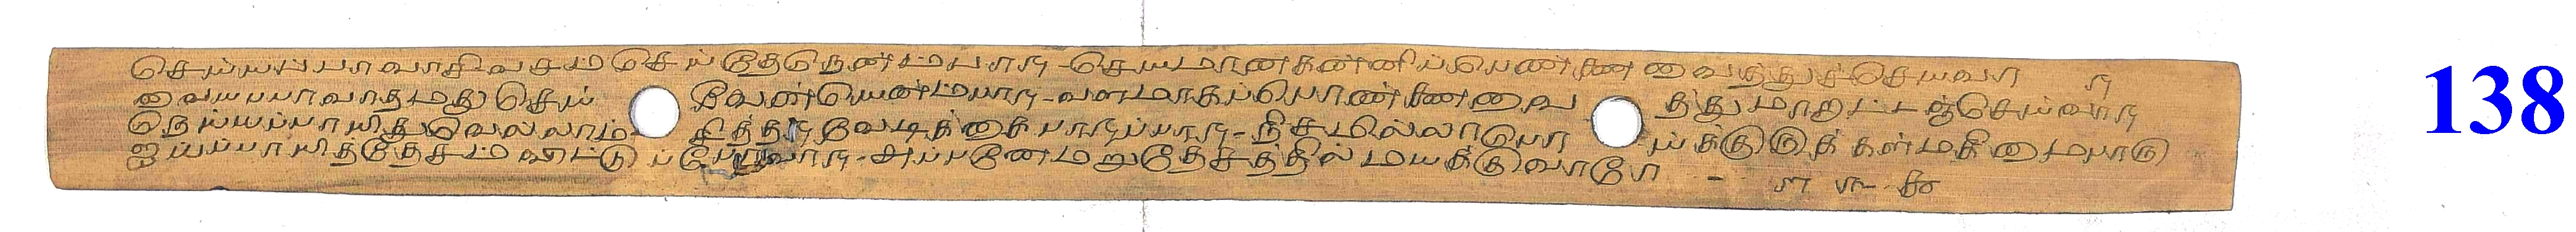 செய்யப்பா வாசிவசம் செய்தேனென்பார் - செயமான கன்னிப்பெண்ணை வைத்துச்செய்வார்
வைய்யப்பாவாதமது செய் வேண்மென்பார் - வளமாகப்பொண்ணை வைத்து மாறாட்டஞ்செய்வார்
மெய்யப்பாயிதுவெல்லாம் சித்தர் வேடிக்கை பார்ப்பார் - நிசமில்லா பொய்க்குடுக்கள் மகிமைபாரு
ஐய்யப்பாயித்தேசம் விட்டுப்போவார் - அப்பனே மறுதேசத்தில் மயக்குவாரே -
138